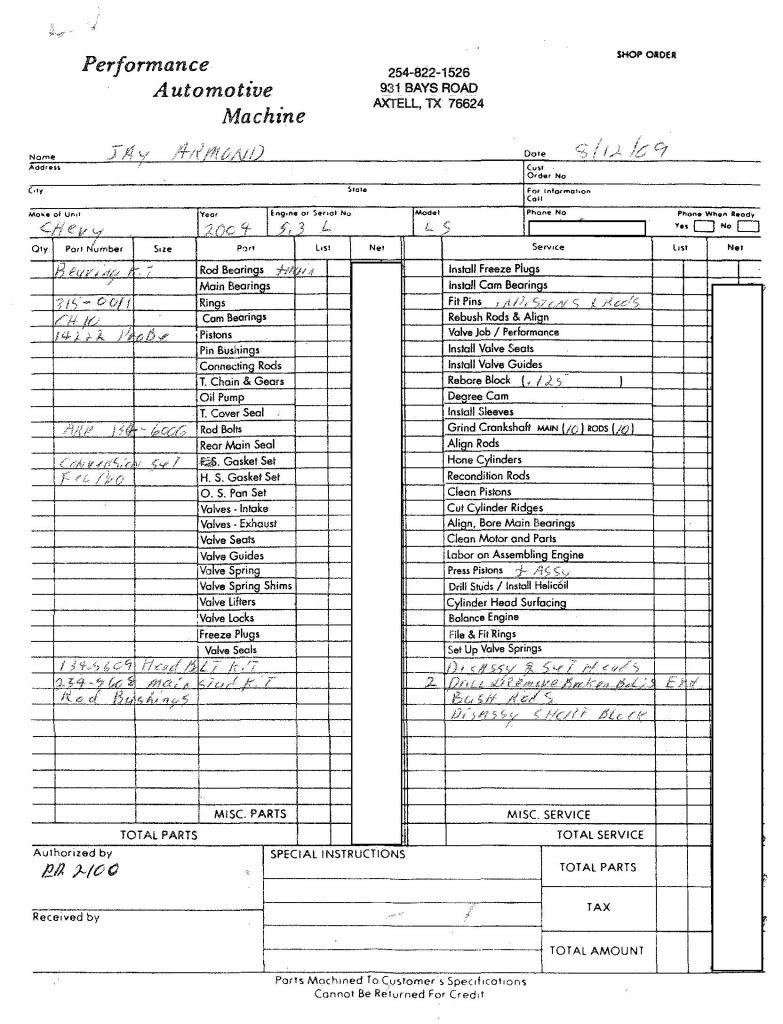 SHOP ORDER
Performance
Automotive
Machine
254-822-1526
931 BAYS ROAD
AXTELL, TX 76624
Name JAY ARMOND Date 8/12/09
Address Cust Order No
City State For Information Call
Make of Unit Year Engine or Serial No Model Phone No Phone When Ready
CHEVY 2009 5.3 L LS Yes No
Qty Part Number Size Part List Net Service List Net
Bearing KIT Rod Bearings + main Install Freeze Plugs
Main Bearings Install Cam Bearings
315-0011 Rings Fit Pins PISTONS & RODS
CH10 Cam Bearings Rebush Rods & Align
14222 Probe Pistons Valve Job / Performance
Pin Bushings Install Valve Seats
Connecting Rods Install Valve Guides
T. Chain & Gears Rebore Block (.125)
Oil Pump Degree Cam
T. Cover Seal Install Sleeves
ARP 134-6006 Rod Bolts Grind Crankshaft MAIN (10) RODS (10)
Rear Main Seal Align Rods
Conversion Set F.S. Gasket Set Hone Cylinders
Fel Pro H. S. Gasket Set Recondition Rods
O. S. Pan Set Clean Pistons
Valves - Intake Cut Cylinder Ridges
Valves - Exhaust Align, Bore Main Bearings
Valve Seats Clean Motor and Parts
Valve Guides Labor on Assembling Engine
Valve Spring Press Pistons + ASSY
Valve Spring Shims Drill Studs / Install Helicoil
Valve Lifters Cylinder Head Surfacing
Valve Locks Balance Engine
Freeze Plugs File & Fit Rings
Valve Seals Set Up Valve Springs
134-3609 Head BLT KIT DisAssy & Set Heads
234-5608 main stud KIT 2 Drill & Remove Broken Bolts End
Rod Bushings BUSH RODS
DisASSY SHORT BLOCK
MISC. PARTS MISC. SERVICE
TOTAL PARTS TOTAL SERVICE
Authorized by SPECIAL INSTRUCTIONS TOTAL PARTS
2100
TAX
Received by
TOTAL AMOUNT
Parts Machined To Customer's Specifications
Cannot Be Returned For Credit